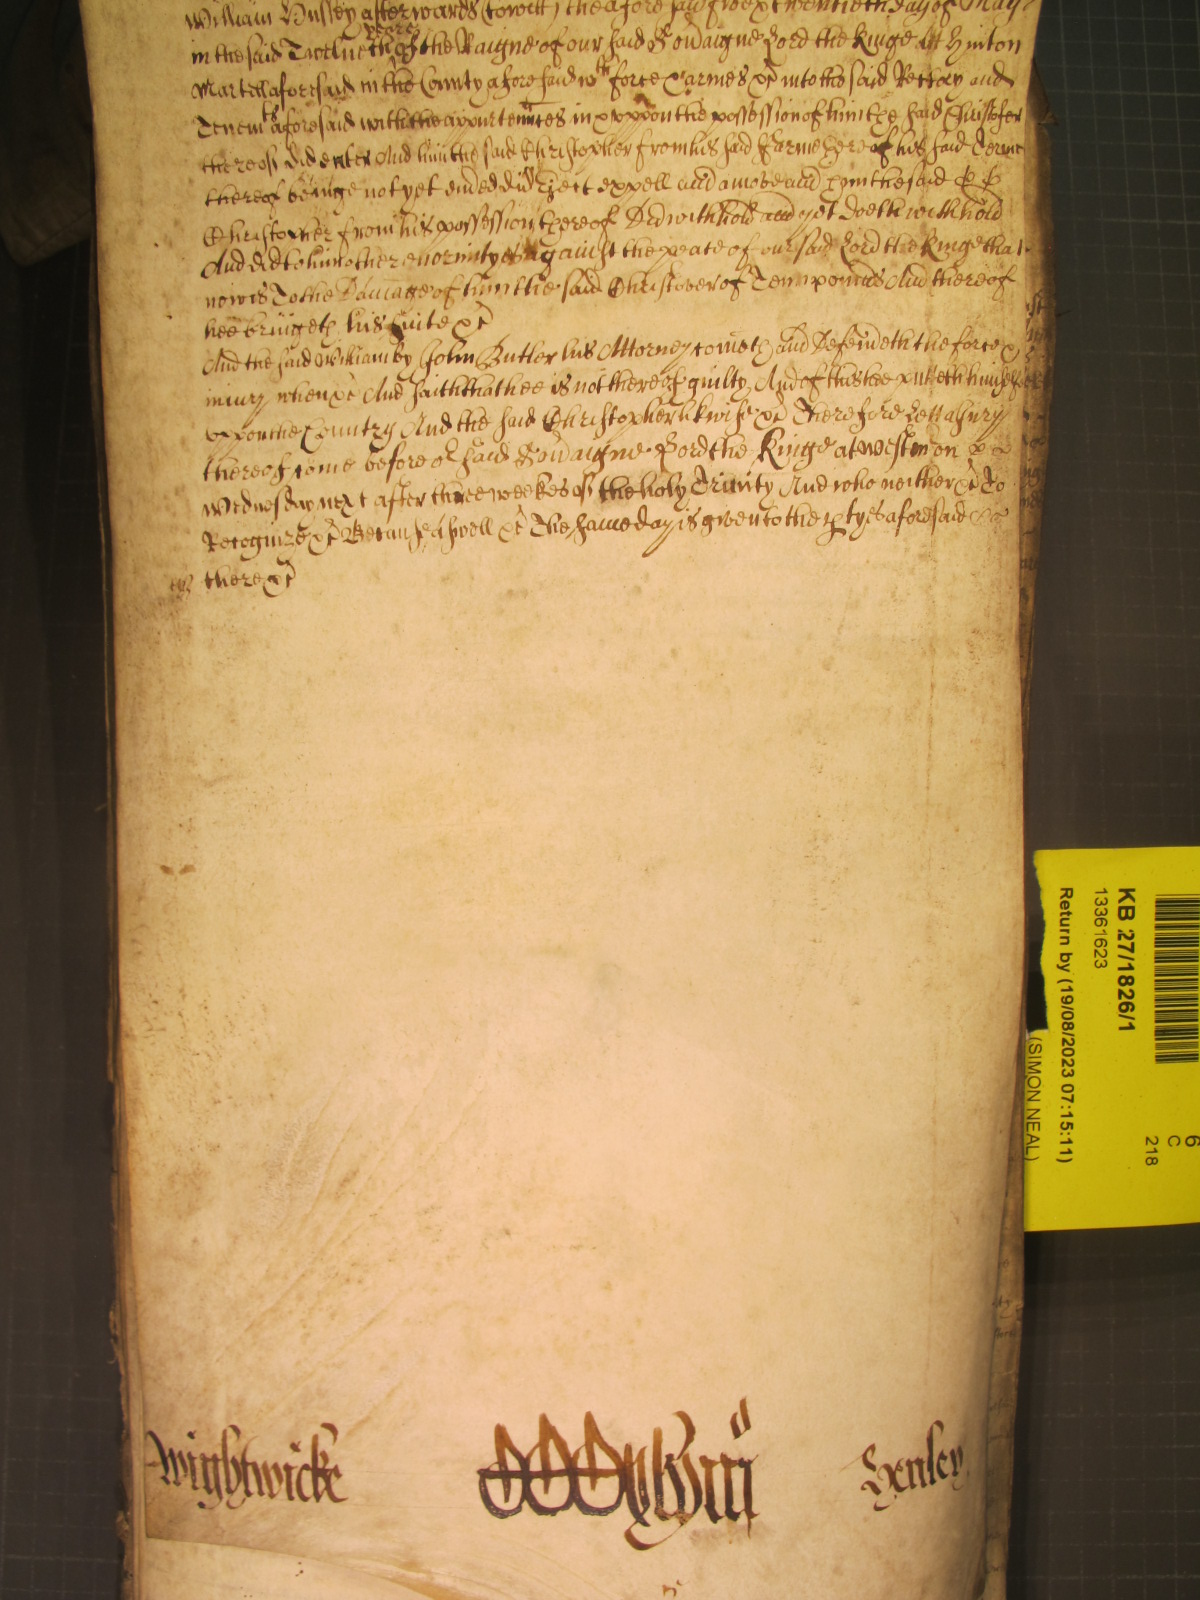 William Hussey afterwards (towitt) the aforesaid five & twentieth day of May
yeare
in the said Twelueth of the Raigne of our said Sou'aigne Lord the Kinge Att Hinton
Martell aforesaid in the County aforesaid wth force & armes &c into the said Rectory and
Tenemts aforesaid with the appurten'nces in & vppon the possession of him the said Christofer
thereof did enter And him the said Christopher from his said Farme hereof his said Terme
thereof beinge not yet ended did Eject expell and amove and him the said
Christopher from his possession thereof Did withhold and yet doeth withhold
And did to him other enormityes against the peace of our said Lord the Kinge that
now is To the Damage of him the said Christover of Tenn pounds And thereof
hee bringeth his suite &c
And the said William by John Butler his Attorney cometh and Defendeth the force &
iniury when &c And saith that hee is not thereof guilty And of this hee putteth himselfe
vppon the Country And the said Christopher likwise &c Therefore lett a Jury
thereof come before or said Sou'aigne Lord the Kinge at Westm on
Wednesday next after three weekes of the holy Trinity And who neither &c To
Recognize &c Because aswell &c The same day is given to the p'tyes aforesaid
there &c
Wightwicke
Henley
KB 27/1826/1
13361623
Return by (19/08/2023 07:15:11)
(SIMON NEAL)
6
C
218